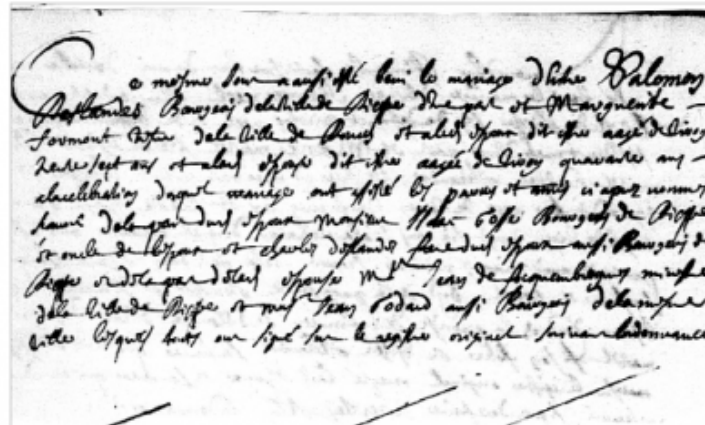 Ce mesme jour a aussi esté beni le mariage d'Entre Salomon
Deslandes Bourgeois de la Ville de Dieppe d'une part et Marguerite
formont de la Ville de et aled espoux dit estre aagé de Viron
trente sept ans et alad espouse dit estre aagée de Viron quarante ans
a la celebration duquel mariage ont assisté les parens et amis cy apres nommes
scavoir de la part dud espoux Monsieur Bourgeois de Dieppe
et oncle de l'espoux et Charles deslandes frere dud espoux aussi Bourgeois de
Dieppe et de la part de lad espouse Mr Jean de ministre
de la Ville de Dieppe et Jean Godard aussi Bourgeois de la mesme
Ville lesquels tous ont signé sur le registre original suivant l'ordonnance